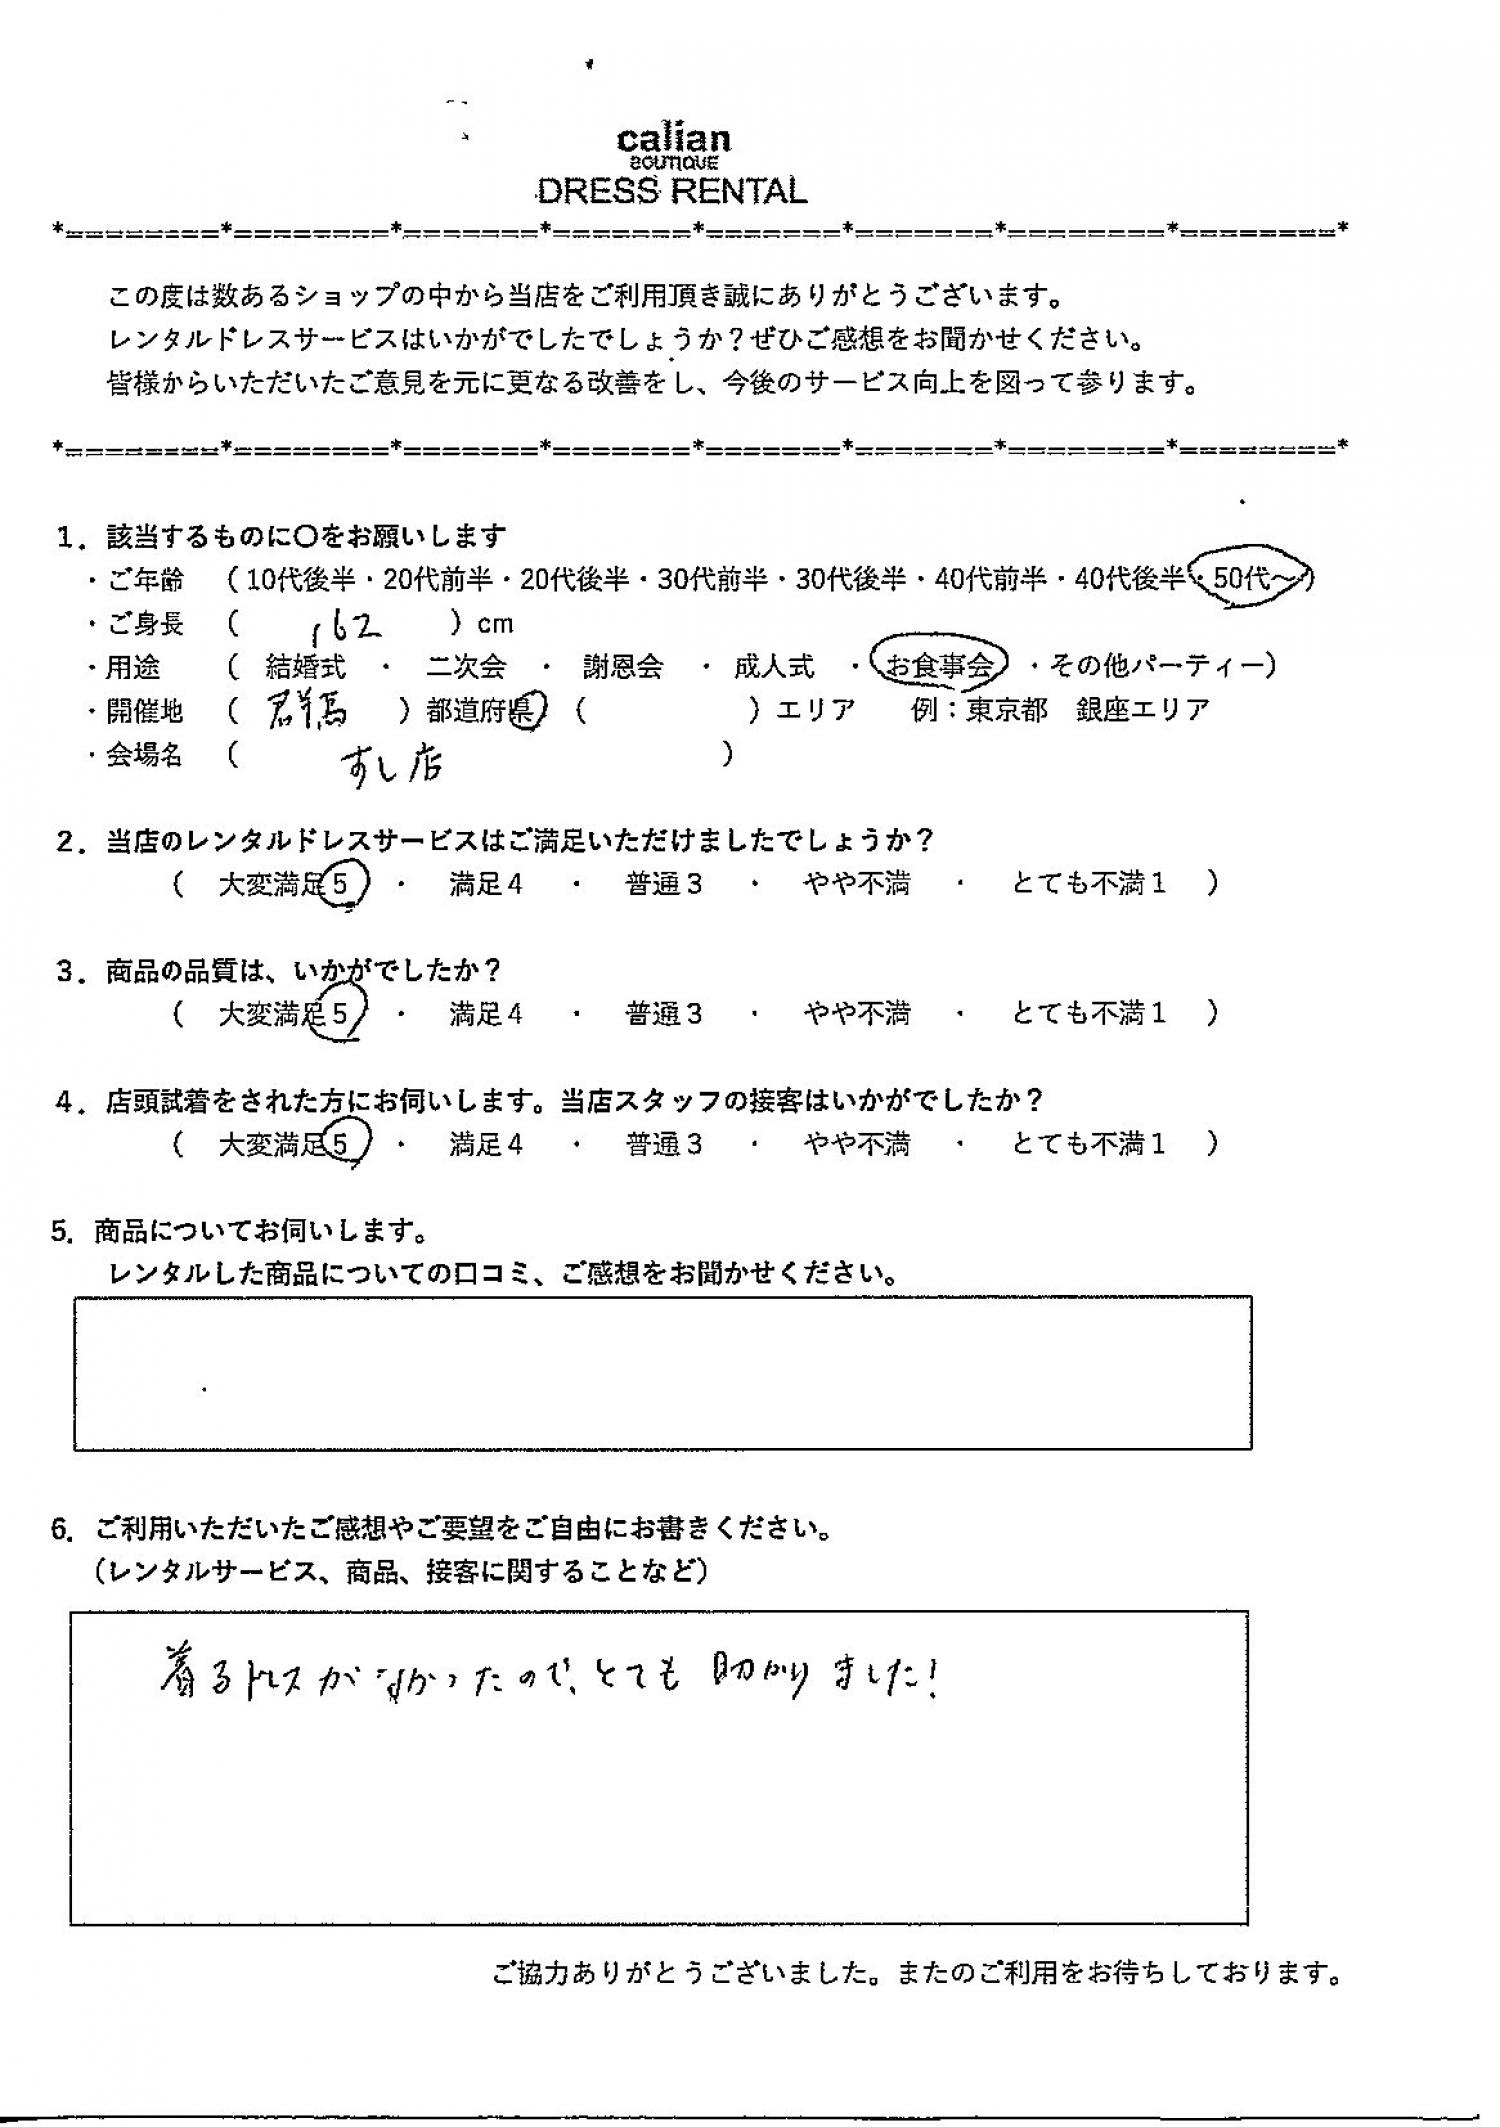 calian
BOUTIQUE
DRESS RENTAL
*========*========*=======*=======*=======*=======*========*========*
この度は数あるショップの中から当店をご利用頂き誠にありがとうございます。
レンタルドレスサービスはいかがでしたでしょうか？ぜひご感想をお聞かせください。
皆様からいただいたご意見を元に更なる改善をし、今後のサービス向上を図って参ります。
*========*========*=======*=======*=======*=======*========*========*
1．該当するものに〇をお願いします
・ご年齢 （10代後半・20代前半・20代後半・30代前半・30代後半・40代前半・40代後半・50代～）
・ご身長 （ 162 ）cm
・用途 （ 結婚式 ・ 二次会 ・ 謝恩会 ・ 成人式 ・ お食事会 ・その他パーティー）
・開催地 （ 群馬 ）都道府県 （ ）エリア 例：東京都 銀座エリア
・会場名 （ すし店 ）
2．当店のレンタルドレスサービスはご満足いただけましたでしょうか？
（ 大変満足5 ・ 満足4 ・ 普通3 ・ やや不満 ・ とても不満1 ）
3．商品の品質は、いかがでしたか？
（ 大変満足5 ・ 満足4 ・ 普通3 ・ やや不満 ・ とても不満1 ）
4．店頭試着をされた方にお伺いします。当店スタッフの接客はいかがでしたか？
（ 大変満足5 ・ 満足4 ・ 普通3 ・ やや不満 ・ とても不満1 ）
5．商品についてお伺いします。
レンタルした商品についての口コミ、ご感想をお聞かせください。
6．ご利用いただいたご感想やご要望をご自由にお書きください。
（レンタルサービス、商品、接客に関することなど）
着るドレスがなかったので、とても助かりました！
ご協力ありがとうございました。またのご利用をお待ちしております。